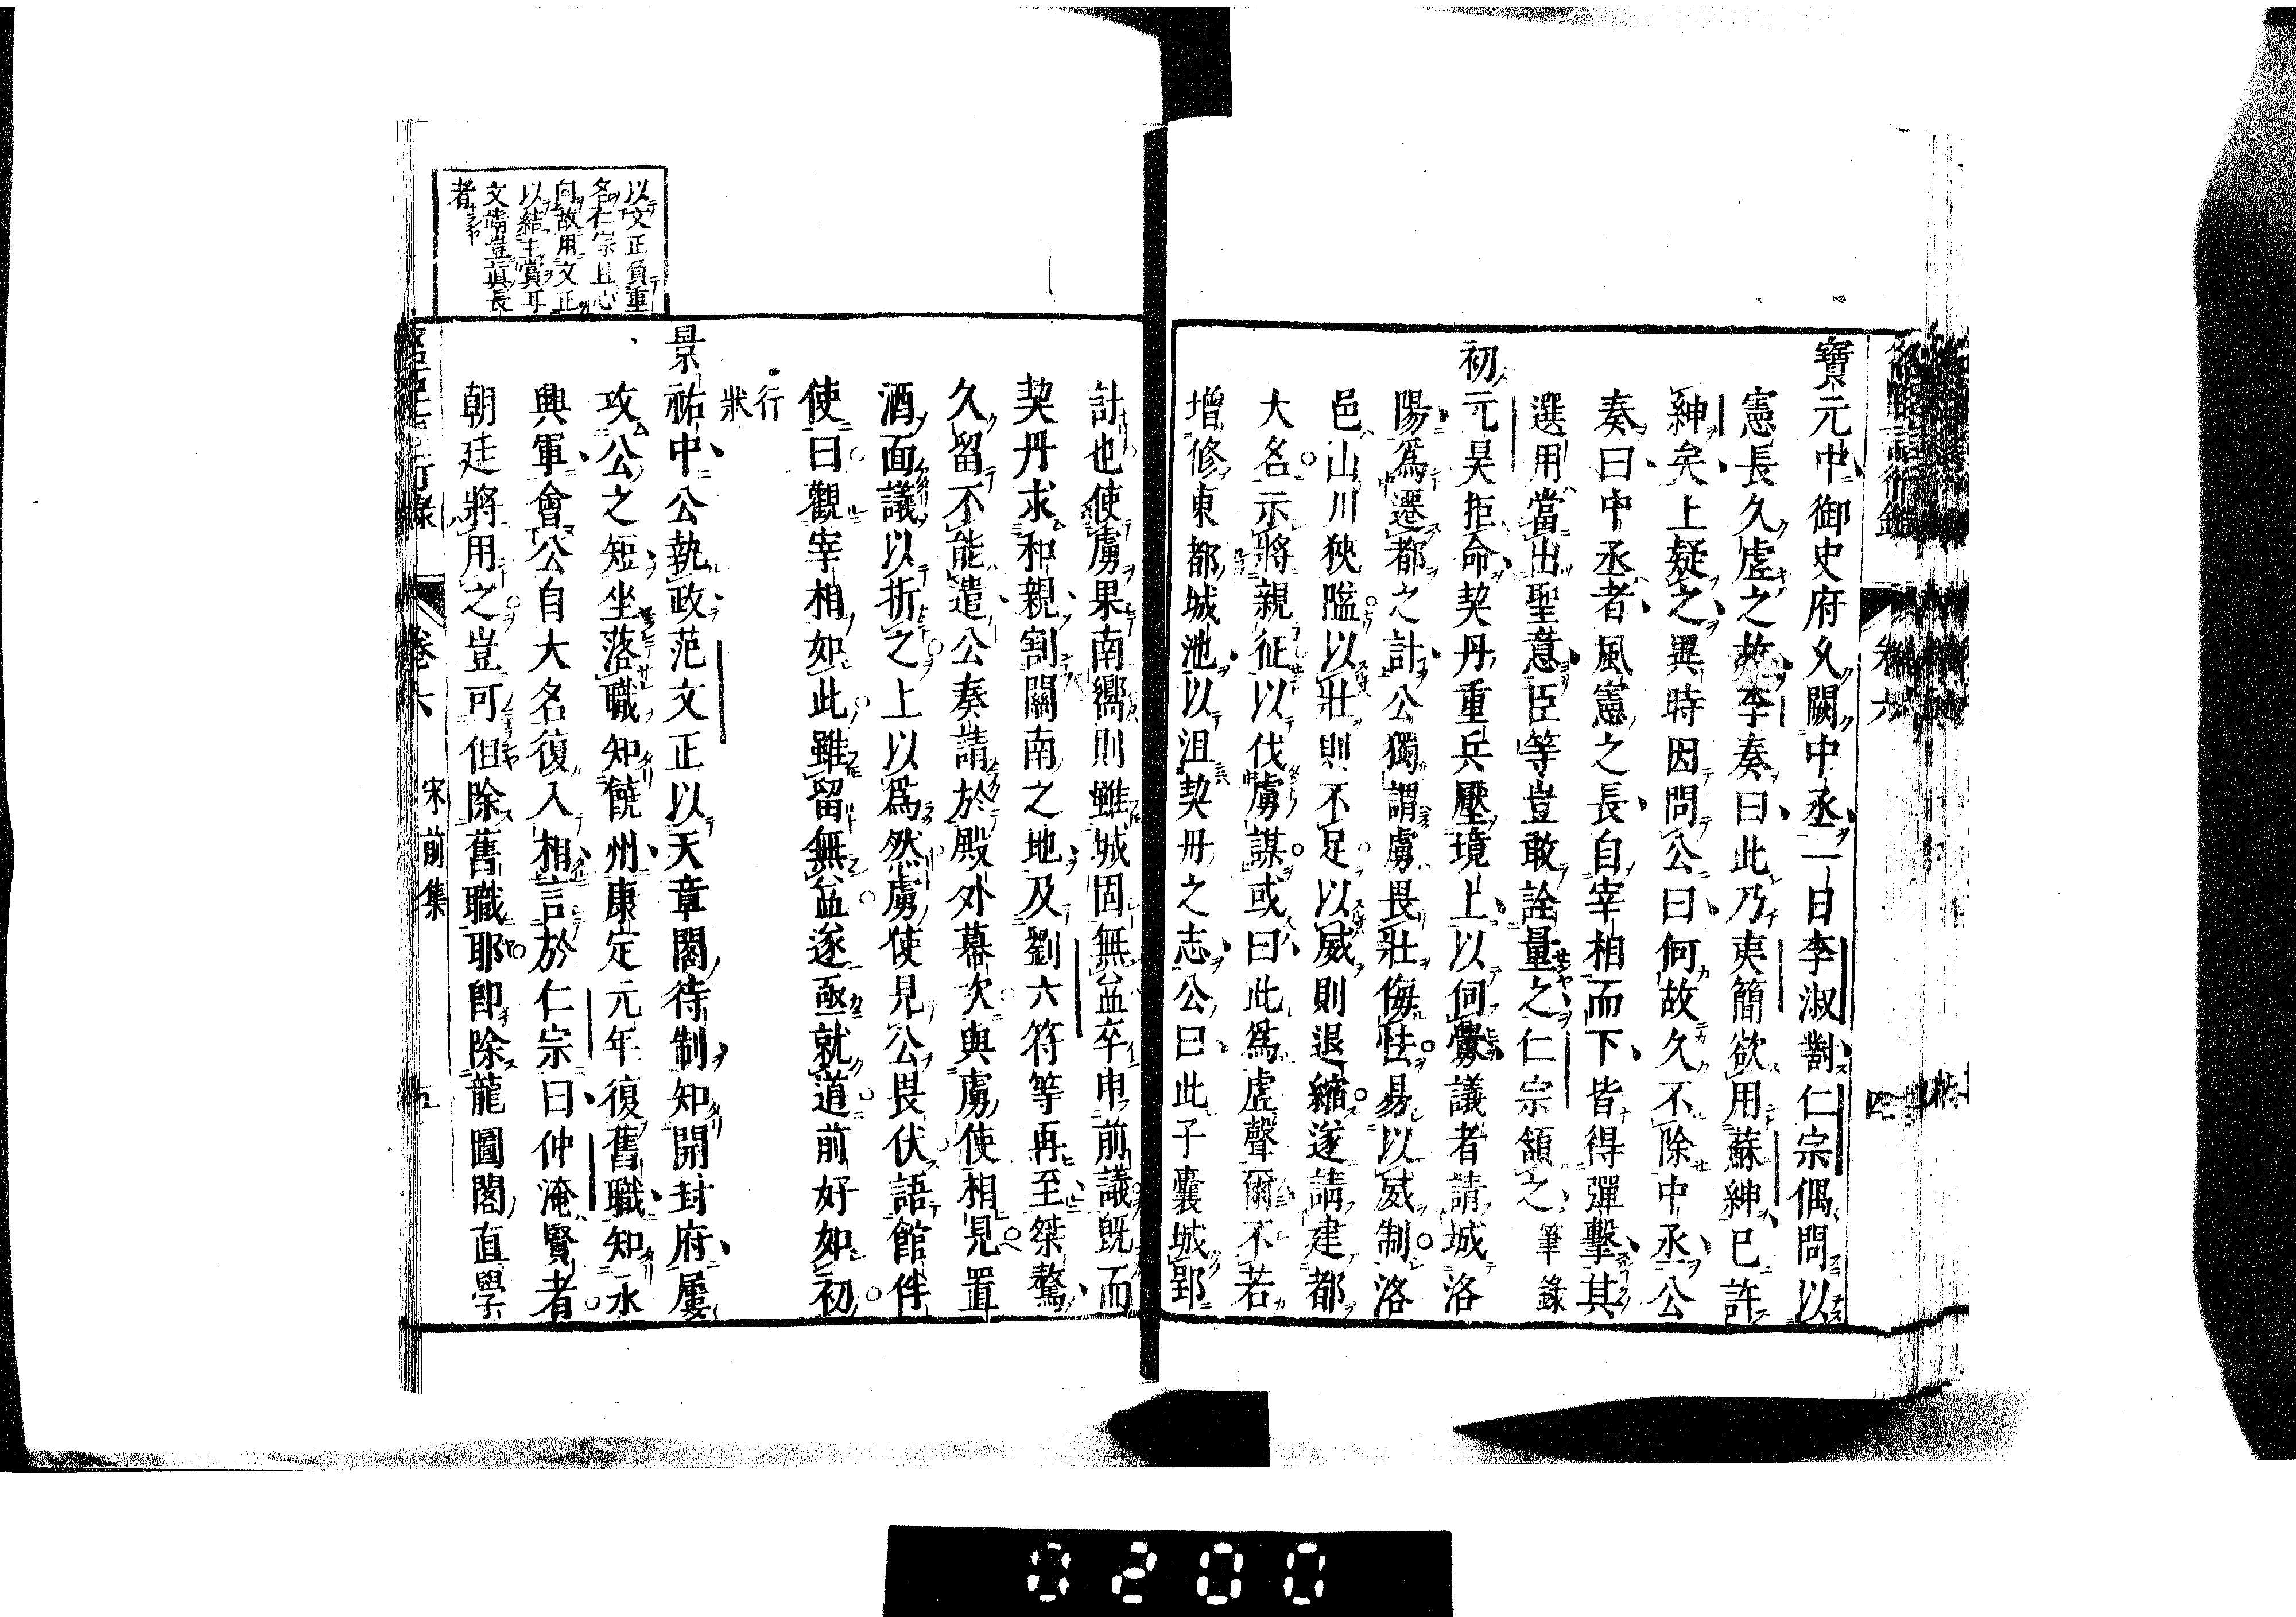 寶元中御史府久闕中丞一日李淑對仁宗偶問以
憲長久虛之故李奏曰此乃夷簡欲用蘇紳已許
紳矣上疑之異時因問公曰何故久不除中丞公
奏曰中丞者風憲之長自宰相而下皆得彈擊其
選用當出聖意臣等豈敢詮量之仁宗頷之 筆錄
初元昊拒命契丹重兵壓境上以伺釁議者請城洛
陽爲遷都之計公獨謂虜畏壯侮怯易以威制洛
邑山川狹隘以壯則不足以威則退縮遂請建都
大名示將親征以伐虜謀或曰此爲虛聲爾不若
增修東都城池以沮契丹之志公曰此子囊城郢
計也使虜果南嚮則雖城固無益卒申前議旣而
契丹求和親割關南之地及劉六符等再至桀驁
久留不能遣公奏請於殿外幕次與虜使相見置
酒面議以折之上以爲然虜使見公畏伏語館伴
使曰觀宰相如此雖留無益遂亟就道前好如初
行狀
景祐中公執政范文正以天章閣待制知開封府屢
攻公之短坐落職知饒州康定元年復舊職知永
興軍會公自大名復入相言於仁宗曰仲淹賢者
朝廷將用之豈可但除舊職耶卽除龍圖閣直學
以文正負重
名仁宗且心
向故用文正
以結主賞耳
文靖豈眞長
者
行錄 卷六 宋前集 五
卷六 四
0200